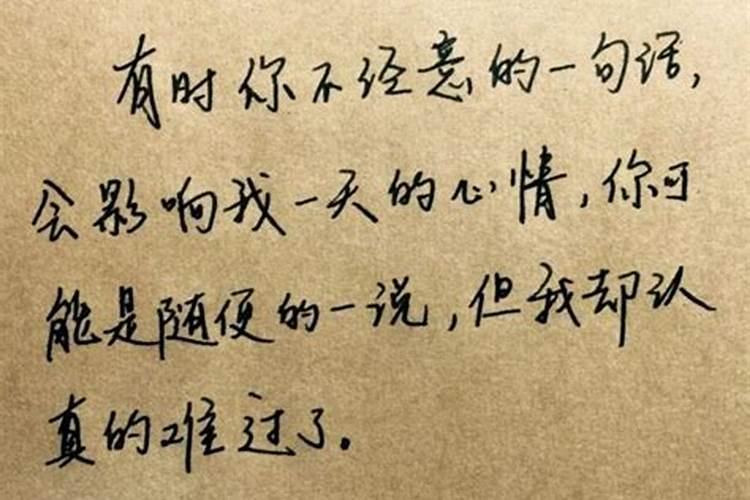 有时你不经意的一句话,
会影响我一天的心情,你可
能是随便的一说,但我却认
真的难过了。